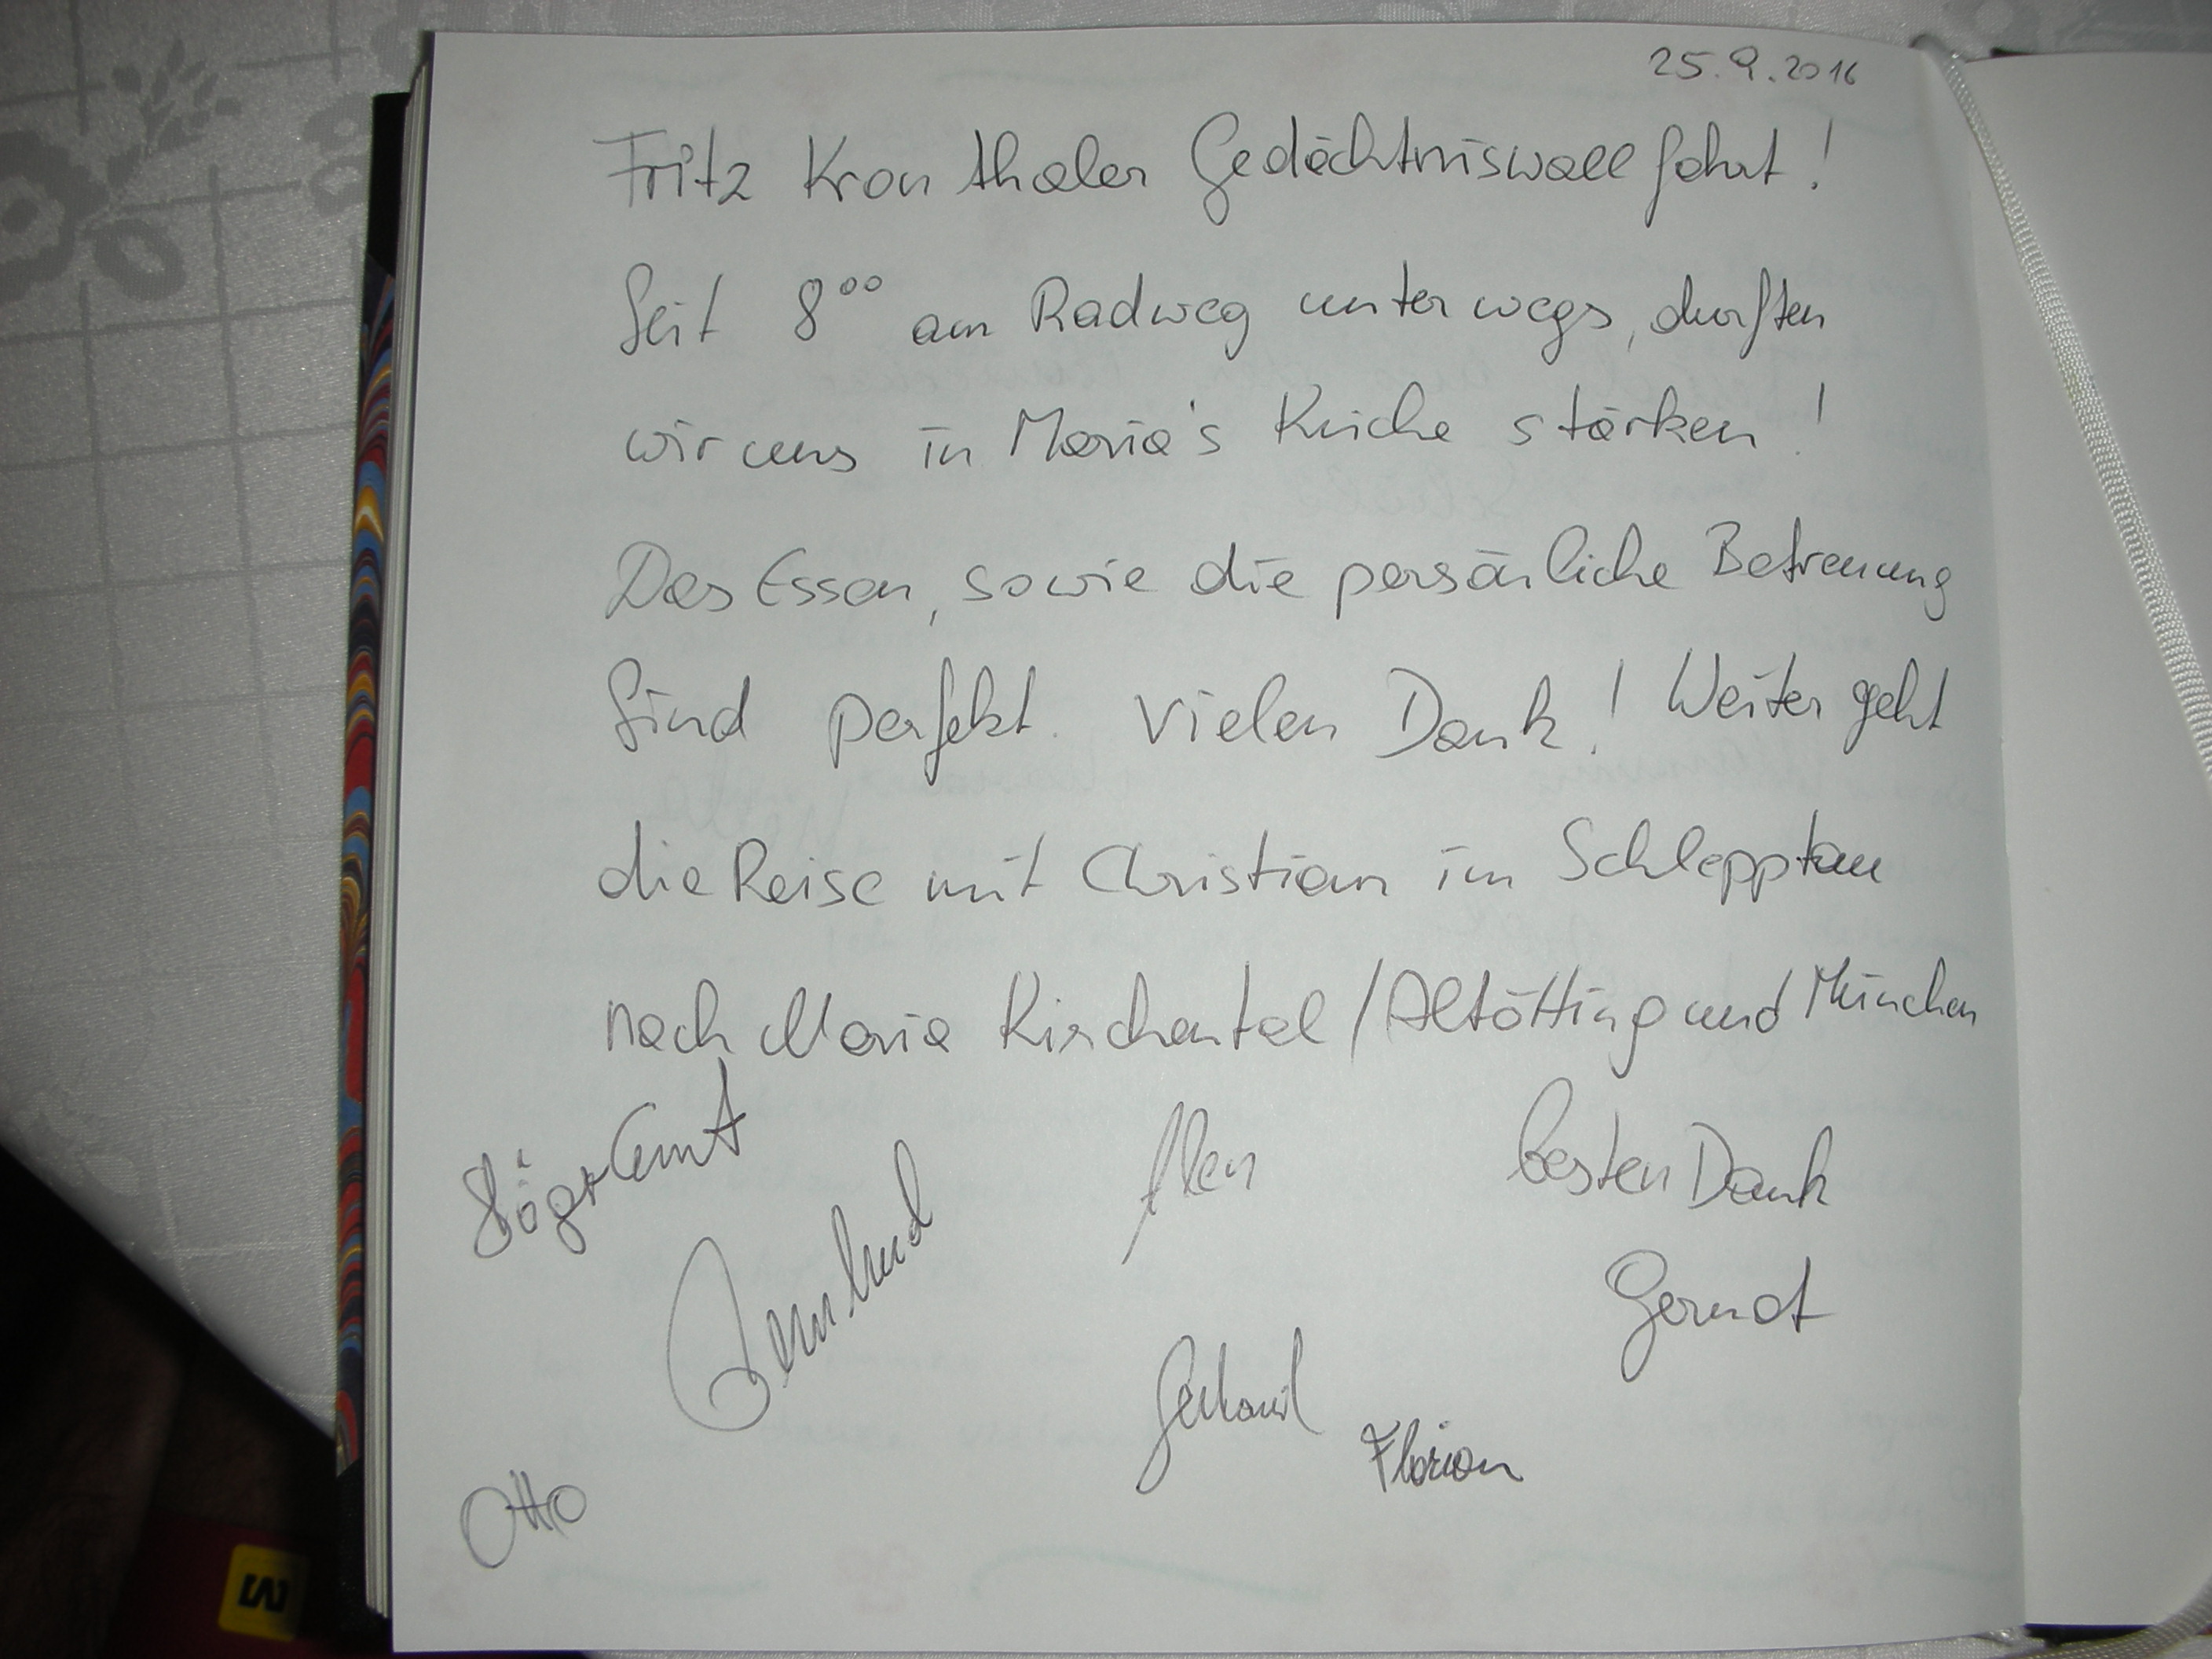 25.9.2016
Fritz Kronthaler Gedächtniswallfahrt!
Seit 8⁰⁰ am Radweg unterwegs, durften
wir uns in Maria's Küche stärken!
Das Essen, sowie die persönliche Betreuung
sind perfekt. Vielen Dank! Weiter geht
die Reise mit Christian im Schlepptau
nach Maria Kirchental / Altötting und München
besten Dank
Bernhard
Gernot
Gerhard
Florian
Otto